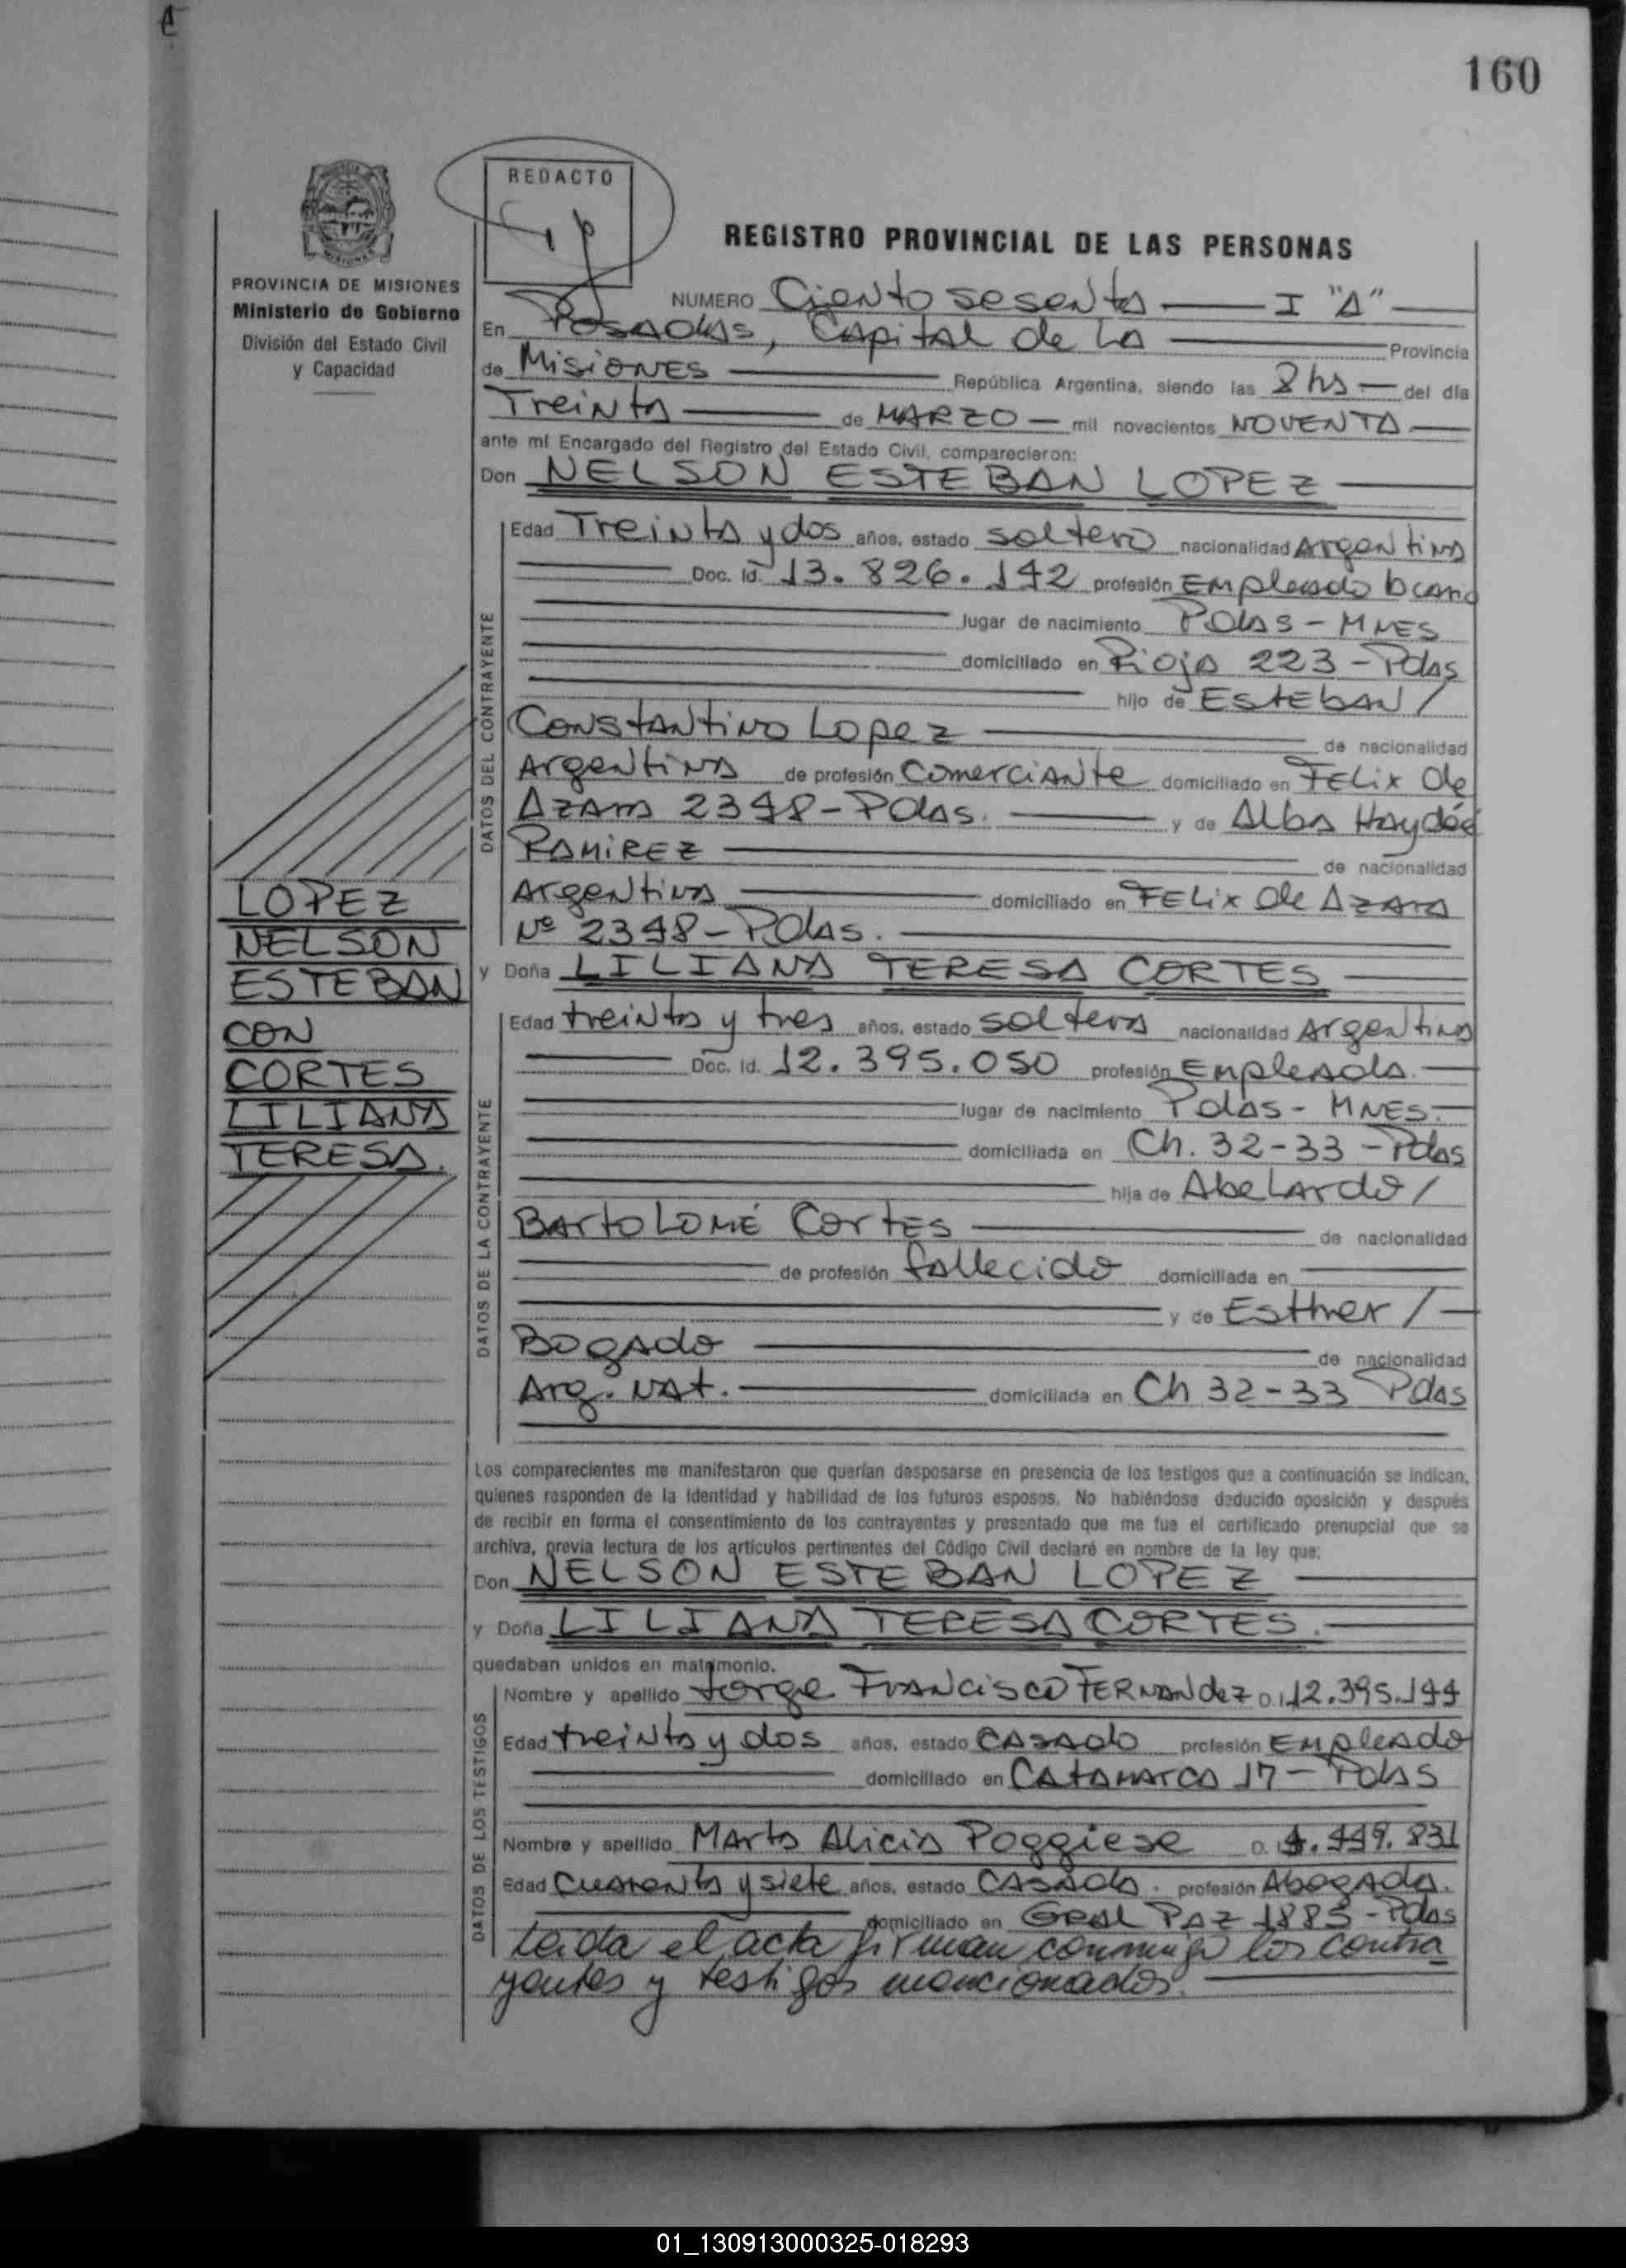 160
REDACTO
PROVINCIA DE MISIONES
Ministerio de Gobierno
División del Estado Civil
y Capacidad
REGISTRO PROVINCIAL DE LAS PERSONAS
NUMERO Ciento sesenta I "A"
En Posadas, Capital de la Provincia
de Misiones República Argentina, siendo las 8 hs del día
Treinta de MARZO mil novecientos NOVENTA
ante mí Encargado del Registro del Estado Civil, comparecieron:
Don NELSON ESTEBAN LOPEZ
DATOS DEL CONTRAYENTE
Edad Treinta y dos años, estado soltero nacionalidad Argentina
Doc. Id. 13.826.142 profesión Empleado bcario
lugar de nacimiento Pdas - Mnes
domiciliado en Rioja 223 - Pdas
hijo de Esteban /
Constantino Lopez de nacionalidad
Argentina de profesión Comerciante domiciliado en Felix de
Azara 2398 - Pdas. y de Alba Haydée
RAMIREZ de nacionalidad
Argentina domiciliado en Felix de Azara
Nº 2398 - Pdas.
LOPEZ
NELSON
ESTEBAN
CON
CORTES
LILIANA
TERESA.
y Doña LILIANA TERESA CORTES
DATOS DE LA CONTRAYENTE
Edad treinta y tres años, estado soltera nacionalidad Argentina
Doc. Id. 12.395.050 profesión Empleada.
lugar de nacimiento Pdas - Mnes.
domiciliada en Ch. 32-33 - Pdas
hija de Abelardo /
Bartolomé Cortes de nacionalidad
de profesión fallecido domiciliada en
y de Esther /
Bogado de nacionalidad
Arg. Nat. domiciliada en Ch 32-33 Pdas
Los comparecientes me manifestaron que querían desposarse en presencia de los testigos que a continuación se indican,
quienes responden de la identidad y habilidad de los futuros esposos. No habiéndose deducido oposición y después
de recibir en forma el consentimiento de los contrayentes y presentado que me fue el certificado prenupcial que se
archiva, previa lectura de los artículos pertinentes del Código Civil declaré en nombre de la ley que:
Don NELSON ESTEBAN LOPEZ
y Doña LILIANA TERESA CORTES.
quedaban unidos en matrimonio.
DATOS DE LOS TESTIGOS
Nombre y apellido Jorge Francisco FERNANdez D.I. 12.395.144
Edad treinta y dos años, estado CASADO profesión Empleado
domiciliado en CATAMARCA 17 - Pdas
Nombre y apellido Marta Alicia Poggiese D. 831
Edad Cuarenta y siete años, estado CASADA. profesión Abogada.
domiciliado en GRAL PAZ 1885 - Pdas
Leida el acta firman conmigo los contra
yentes y testigos mencionados.
01_130913000325-018293